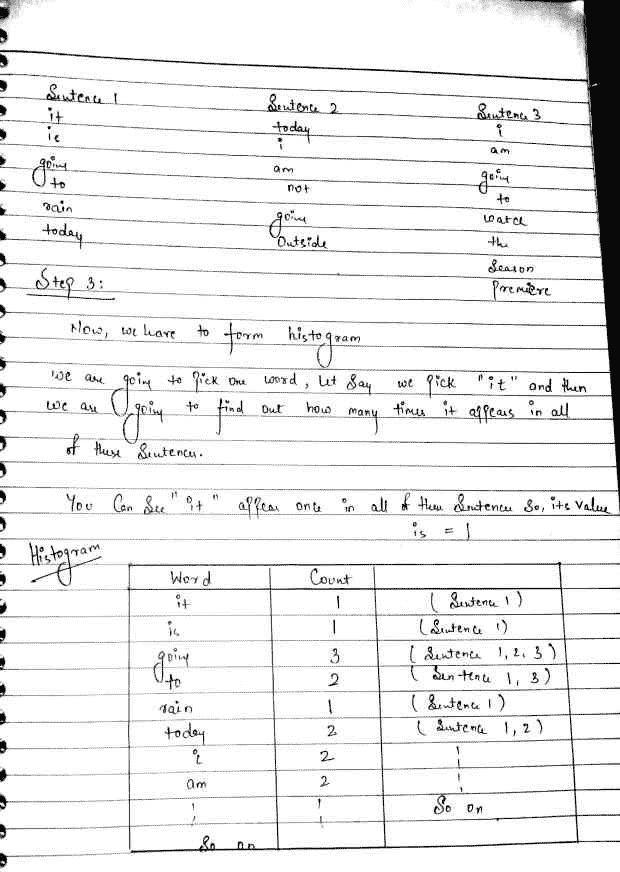 Sentence 1 Sentence 2 Sentence 3
it today i
is i am
going am going
to not to
rain going watch
today Outside the
Season
Premiere
Step 3:
Now, we have to form histogram
we are going to Pick one word, let Say we Pick "it" and then
we are going to find out how many times it appears in all
of these Sentences.
You Can See "it" appear once in all of these Sentences So, its value
is = 1
Histogram
Word Count
it 1 (Sentence 1)
is 1 (Sentence 1)
going 3 (Sentence 1, 2, 3)
to 2 (Sentence 1, 3)
rain 1 (Sentence 1)
today 2 (Sentence 1, 2)
i 2
am 2
So on
So on